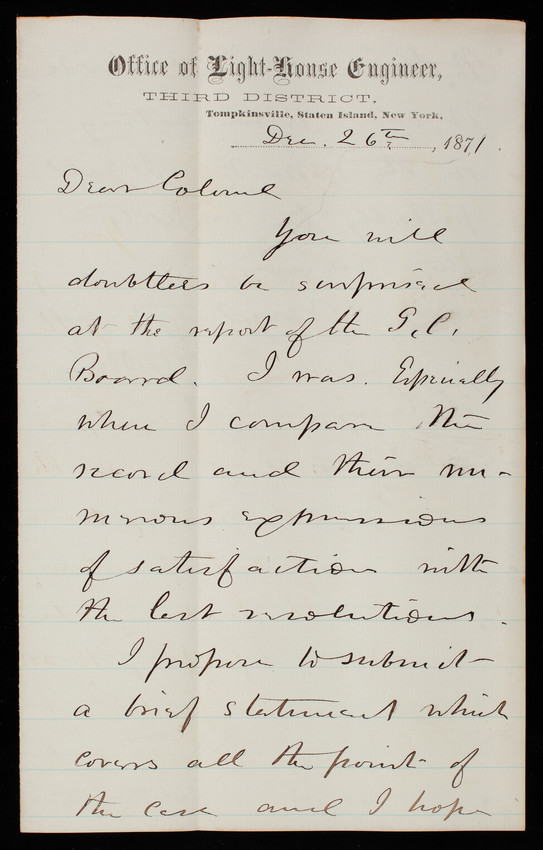 Office of Light-House Engineer,
THIRD DISTRICT,
Tompkinsville, Staten Island, New York,
Dec. 26th, 1871.
Dear Colonel
You will
doubtless be surprised
at the report of the
Board. I was. Especially
when I compare the
record and their nu-
merous expressions
of satisfaction with
the last resolutions.
I propose to submit
a brief statement which
covers all the point of
the case and I hope